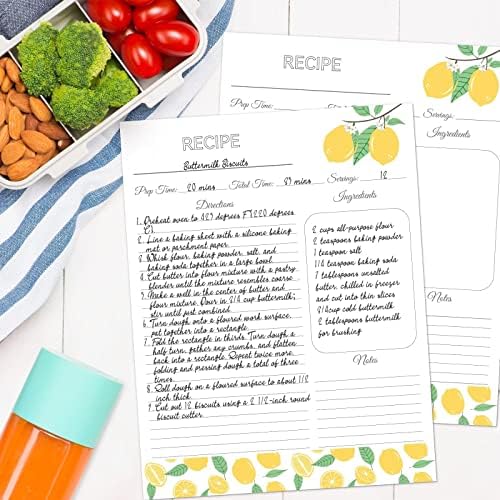 RECIPE
Prep Time:
Servings:
Ingredients
Notes
RECIPE
Buttermilk Biscuits
Prep Time: 20 mins Total Time: 37 mins Servings: 12
Directions
1. Preheat oven to 425 degrees F (220 degrees
C).
2. Line a baking sheet with a silicone baking
mat or parchment paper.
3. Whisk flour, baking powder, salt, and
baking soda together in a large bowl.
4. Cut butter into flour mixture with a pastry
blender until the mixture resembles coarse
5. Make a well in the center of butter and
flour mixture. Pour in 3/4 cup buttermilk;
stir until just combined.
6. Turn dough onto a floured work surface,
pat together into a rectangle.
7. Fold the rectangle in thirds. Turn dough a
half turn, gather any crumbs, and flatten
back into a rectangle. Repeat twice more,
folding and pressing dough a total of three
times.
8. Roll dough on a floured surface to about 1/2
inch thick.
9. Cut out 12 biscuits using a 2 1/2-inch round
biscuit cutter.
Ingredients
2 cups all-purpose flour
2 teaspoons baking powder
1 teaspoon salt
1/4 teaspoon baking soda
7 tablespoons unsalted
butter, chilled in freezer
and cut into thin slices
3/4cup cold buttermilk
2 tablespoons buttermilk
for brushing
Notes